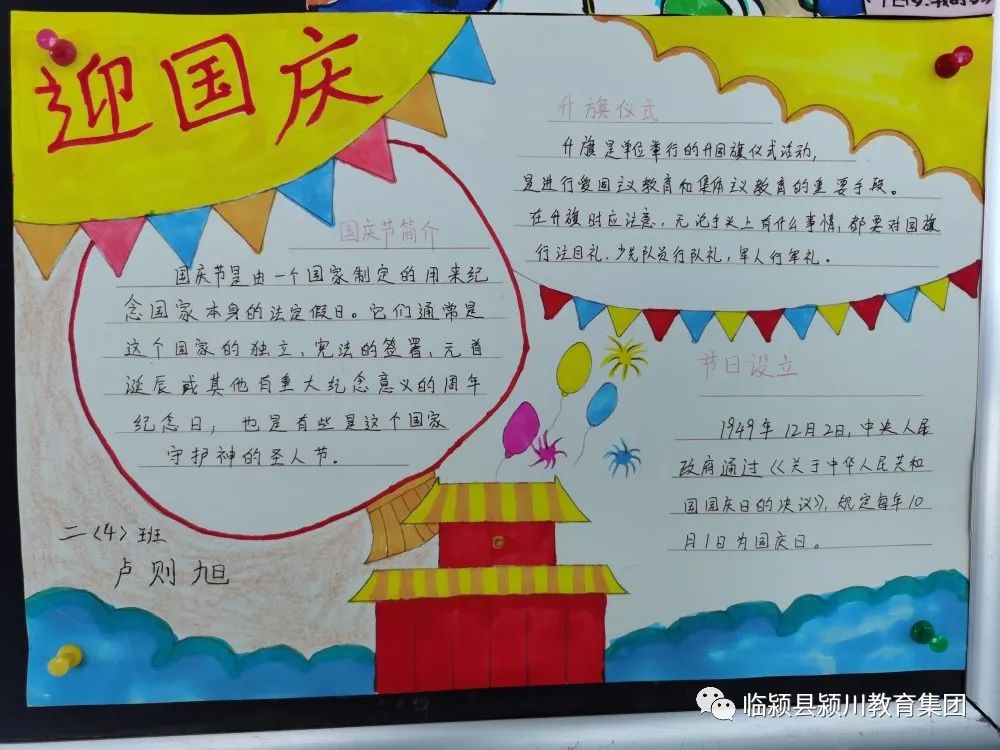 迎国庆
国庆节简介
国庆节是由一个国家制定的用来纪
念国家本身的法定假日。它们通常是
这个国家的独立、宪法的签署、元首
诞辰或其他有重大纪念意义的周年
纪念日，也是有些是这个国家
守护神的圣人节.
二〈4〉班
卢则旭
升旗仪式
升旗是单位举行的升国旗仪式活动，
是进行爱国主义教育和集体主义教育的重要手段。
在升旗时应注意，无论手头上有什么事情，都要对国旗
行注目礼.少先队员行队礼，军人行军礼。
节日设立
1949年12月2日，中央人民
政府通过《关于中华人民共和
国国庆日的决议》，规定每年10
月1日为国庆日。
临颍县颍川教育集团